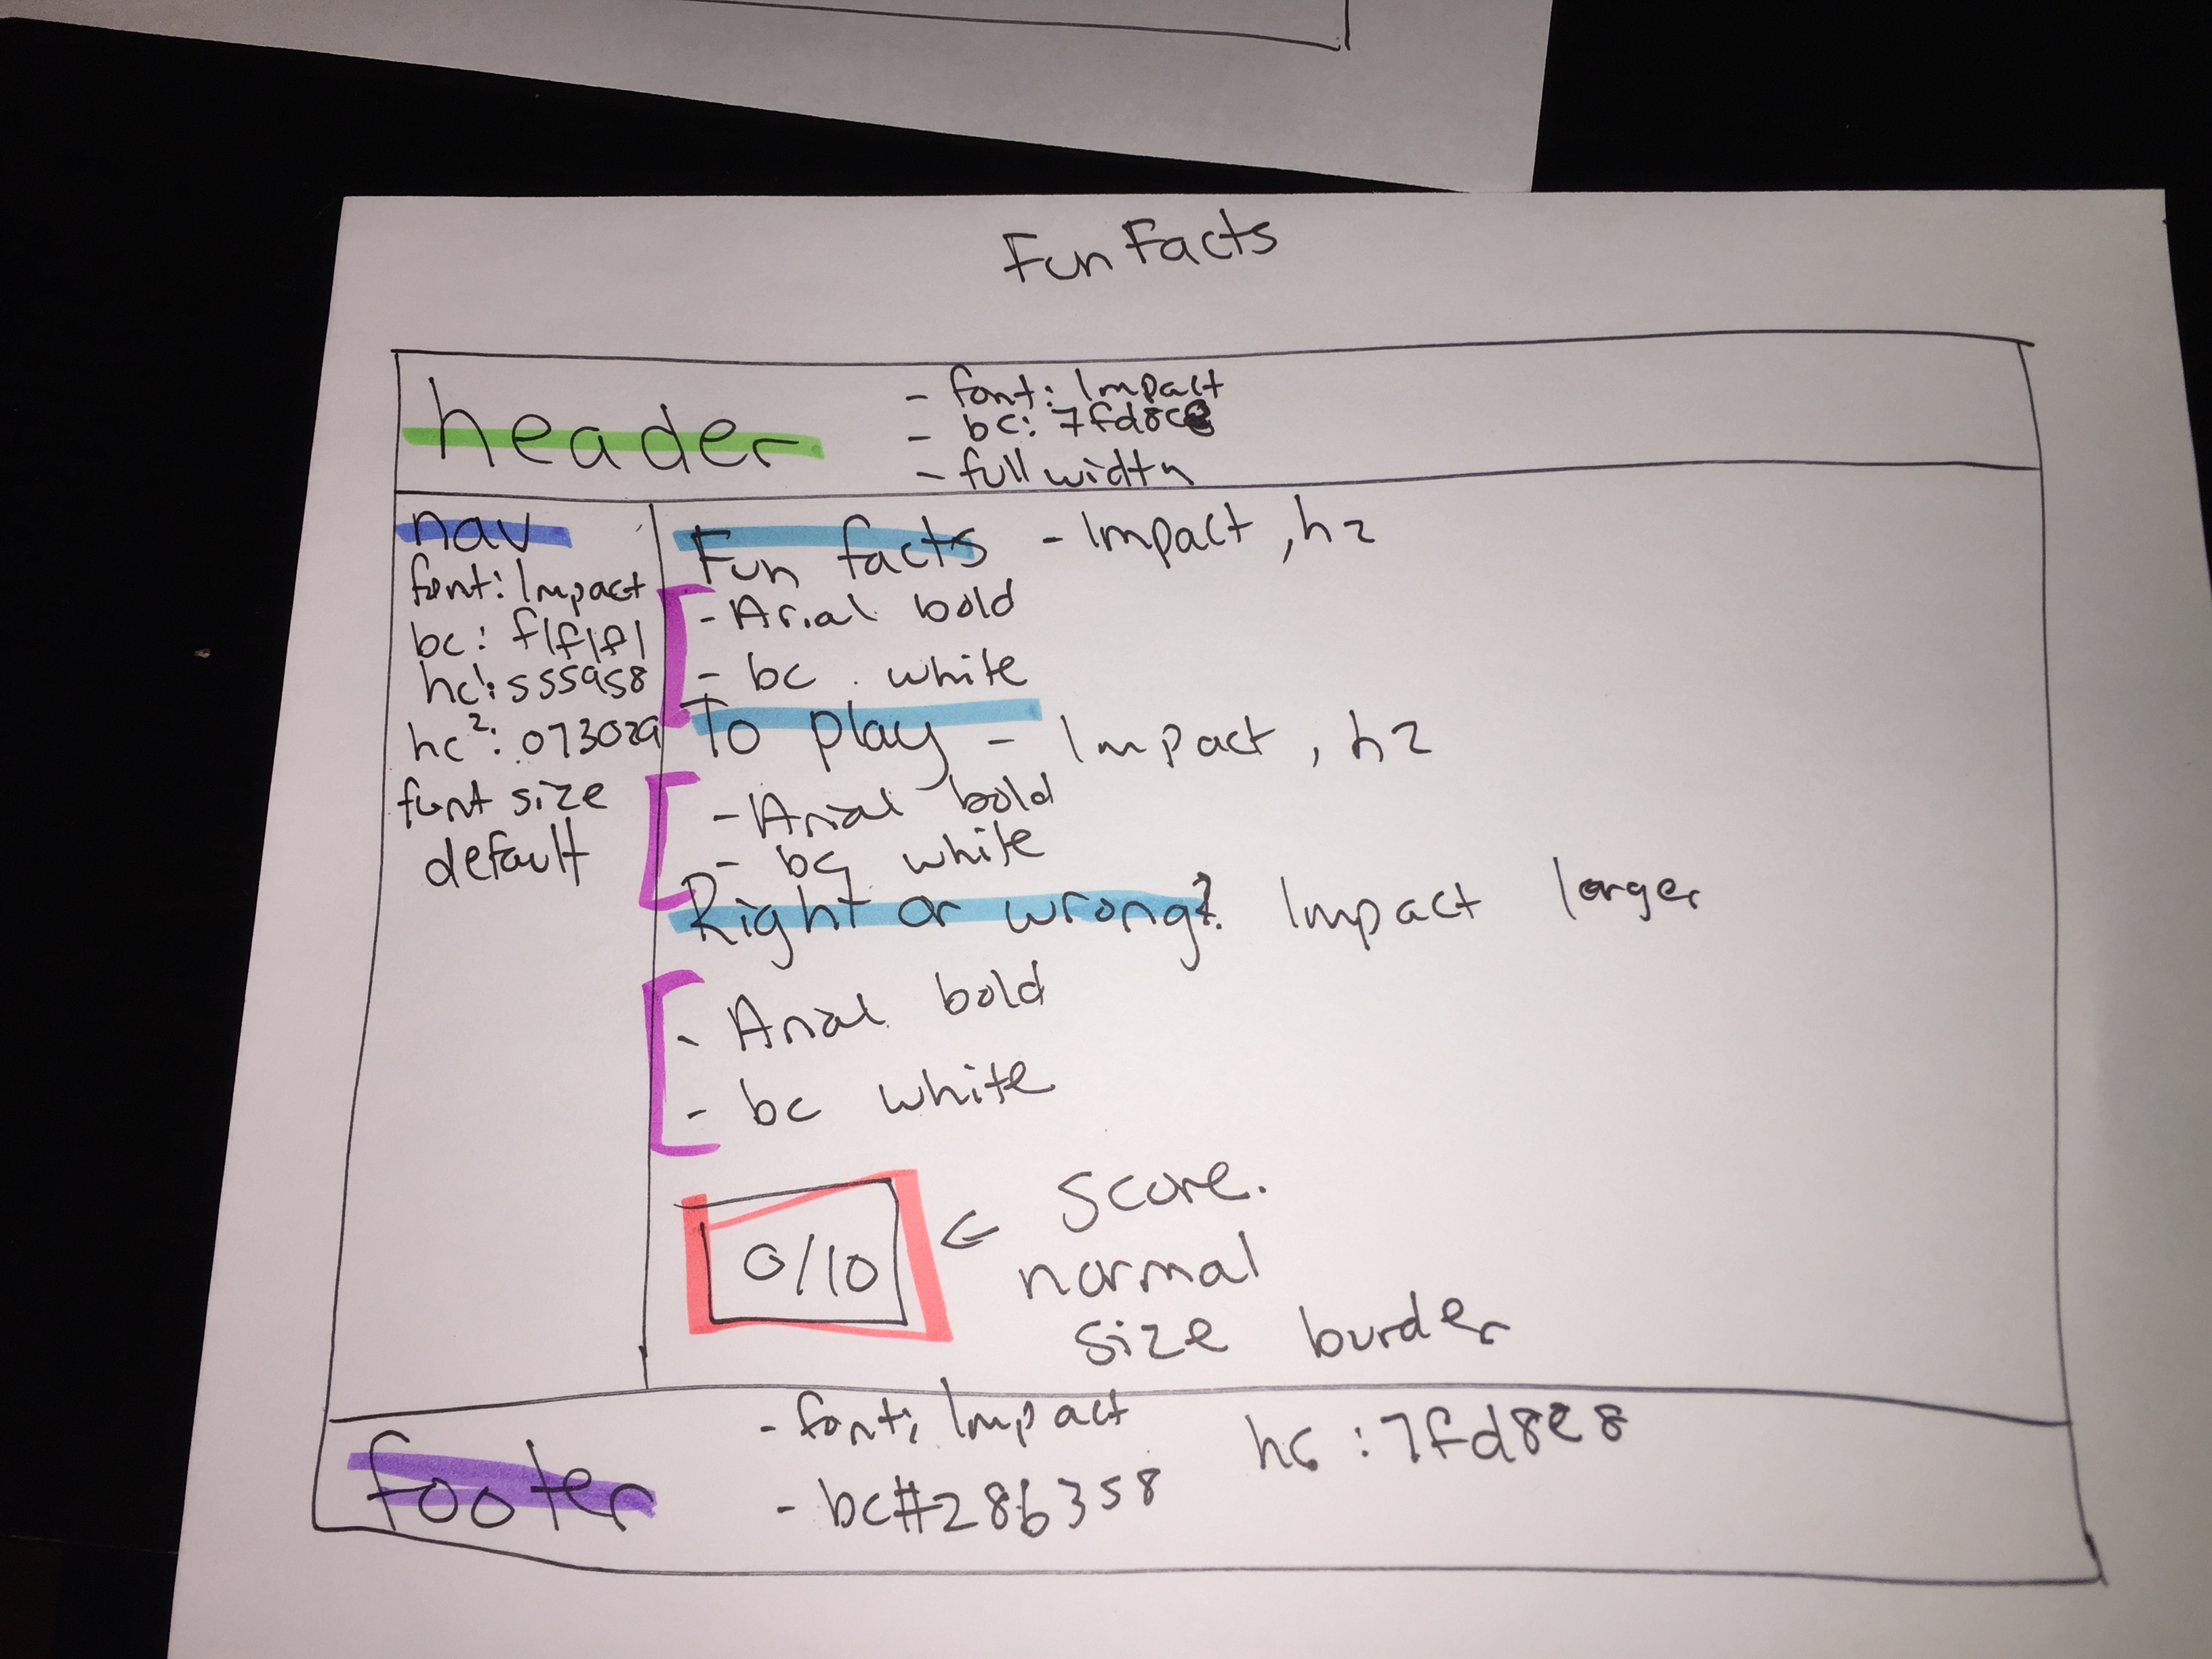 Fun Facts
header
- font: Impact
- bc: 7fd8
- full width
nav
font: Impact
bc: f1f1f1
hc1: 555958
hc2: 07302a
font size
default
Fun facts - Impact, h2
- Arial bold
- bc white
To play - Impact, h2
- Arial bold
- bc white
Right or wrong? Impact larger
- Arial bold
- bc white
0/10
← Score.
normal
size border
footer
- font: Impact
- bc#286358
hc: 7fd8e8